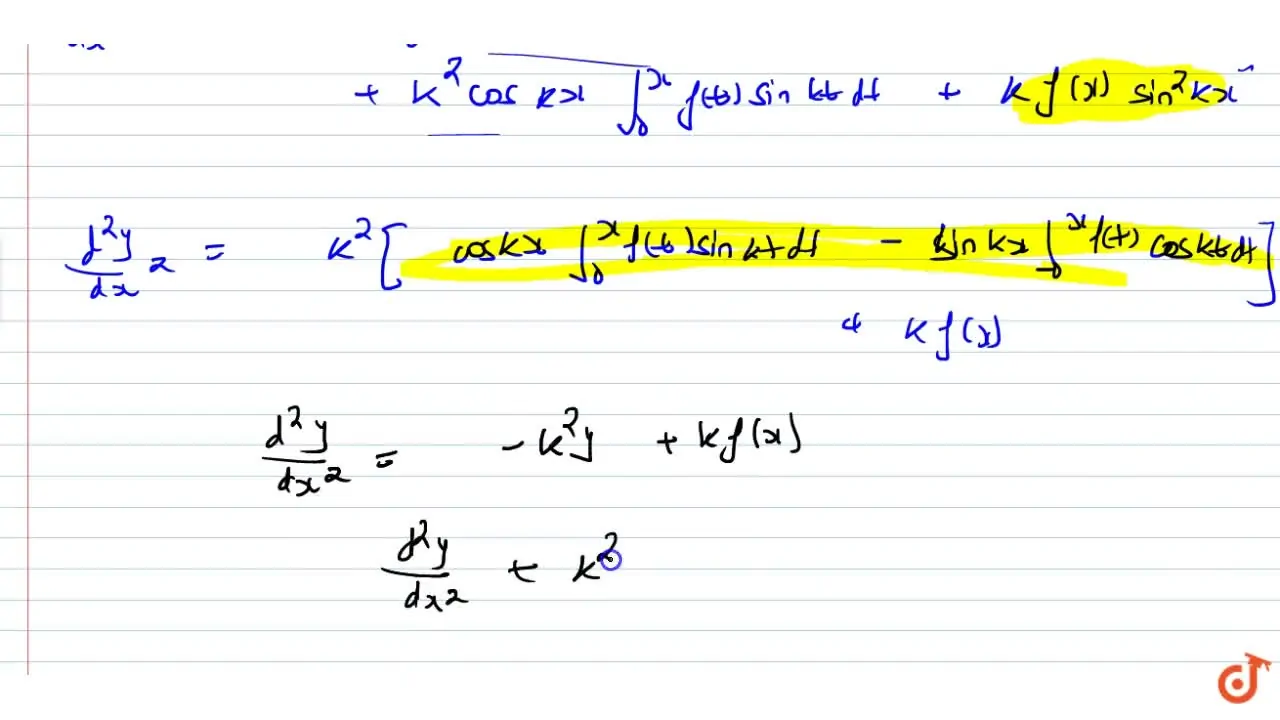 dx
+ k² cos kx ∫₀ˣ f(t) sin kt dt + k f(x) sin² kx
d²y/dx² = k² [ cos kx ∫₀ˣ f(t) sin kt dt − sin kx ∫₀ˣ f(t) cos kt dt ]
+ k f(x)
d²y/dx² = − k²y + k f(x)
d²y/dx² + k²